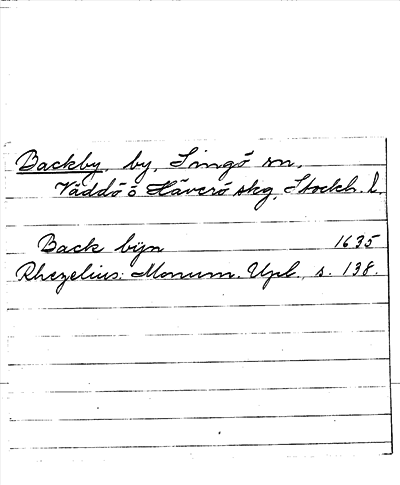 Backby, by, Singö sn,
Väddö o Häverö skg, Stockh. l.
Back bÿn 1635
Rhezelius: Monum. Upl., s. 138.